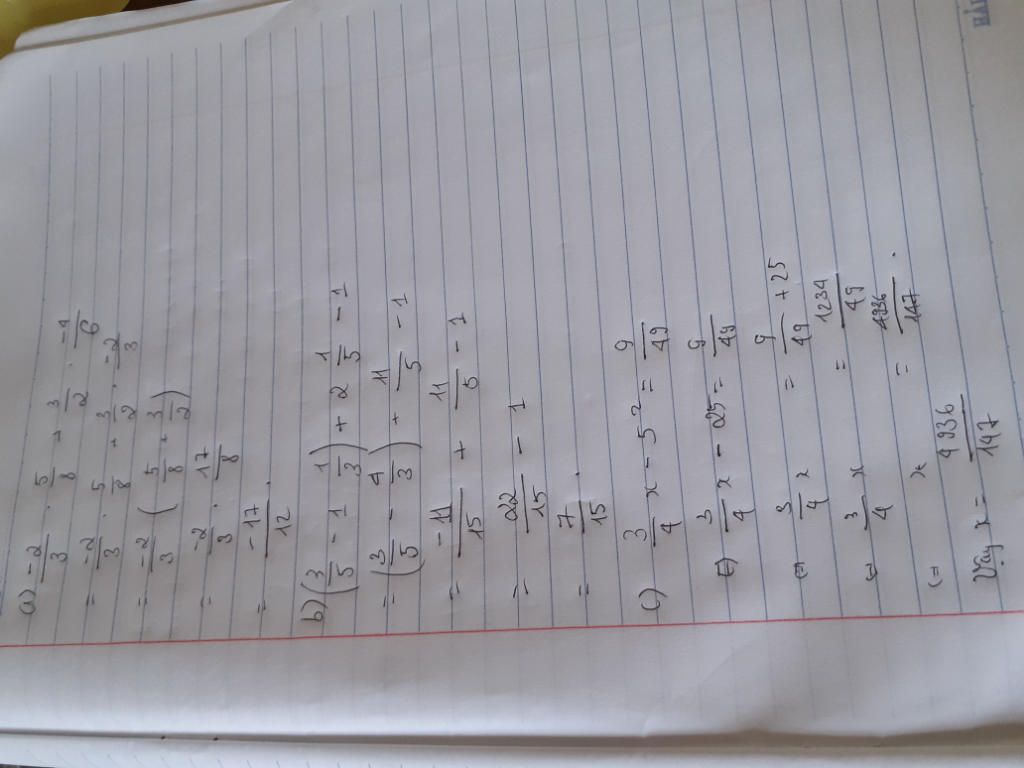 a) -2/3 . 5/8 + 3/2 . -4/6
= -2/3 . 5/8 + 3/2 . -2/3
= -2/3 (5/8 + 3/2)
= -2/3 . 17/8
= -17/12.
b) (3/5 - 1 1/3) + 2 1/5 - 1
= (3/5 - 4/3) + 11/5 - 1
= -11/15 + 11/5 - 1
= 22/15 - 1
= 7/15.
c) 3/4 x - 5² = 9/49
(=) 3/4 x - 25 = 9/49
(=) 3/4 x = 9/49 + 25
(= 3/4 x = 1234/49
(= x = 4936/147.
Vậy x = 4936/147